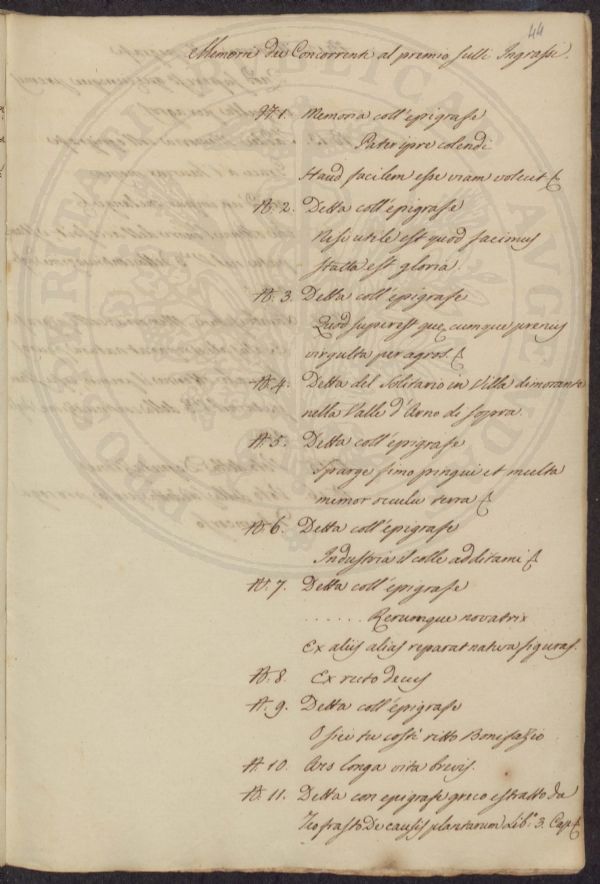 44
Memorie dei Concorrenti al premio sulli Ingrassi.
N. 1. Memoria coll'epigrafe
Pater ipse colendi
Haud facilem esse viam voluit
N. 2. Detta coll'epigrafe
Nisi utile est quod facimus
stulta est gloria.
N. 3. Detta coll'epigrafe
Quod superest quæcumque premes
virgulta per agros.
N. 4. Detta del Solitario in Villa dimorante
nella Valle d'Arno di sopra.
N. 5. Detta coll'epigrafe
Sparge fimo pingui et multa
memor occule terra
N. 6. Detta coll'epigrafe
Industria il colle additami
N. 7. Detta coll'epigrafe
. . . . . . Rerumque novatrix
Ex aliis alias reparat natura figuras.
N. 8. Ex recto decus
N. 9. Detta coll'epigrafe
O sei tu costì ritto Bonifazio
N. 10. Ars longa vita brevis.
N. 11. Detta con epigrafe greco estratto da
Teofrasto De causis plantarum Lib. 3. Cap.